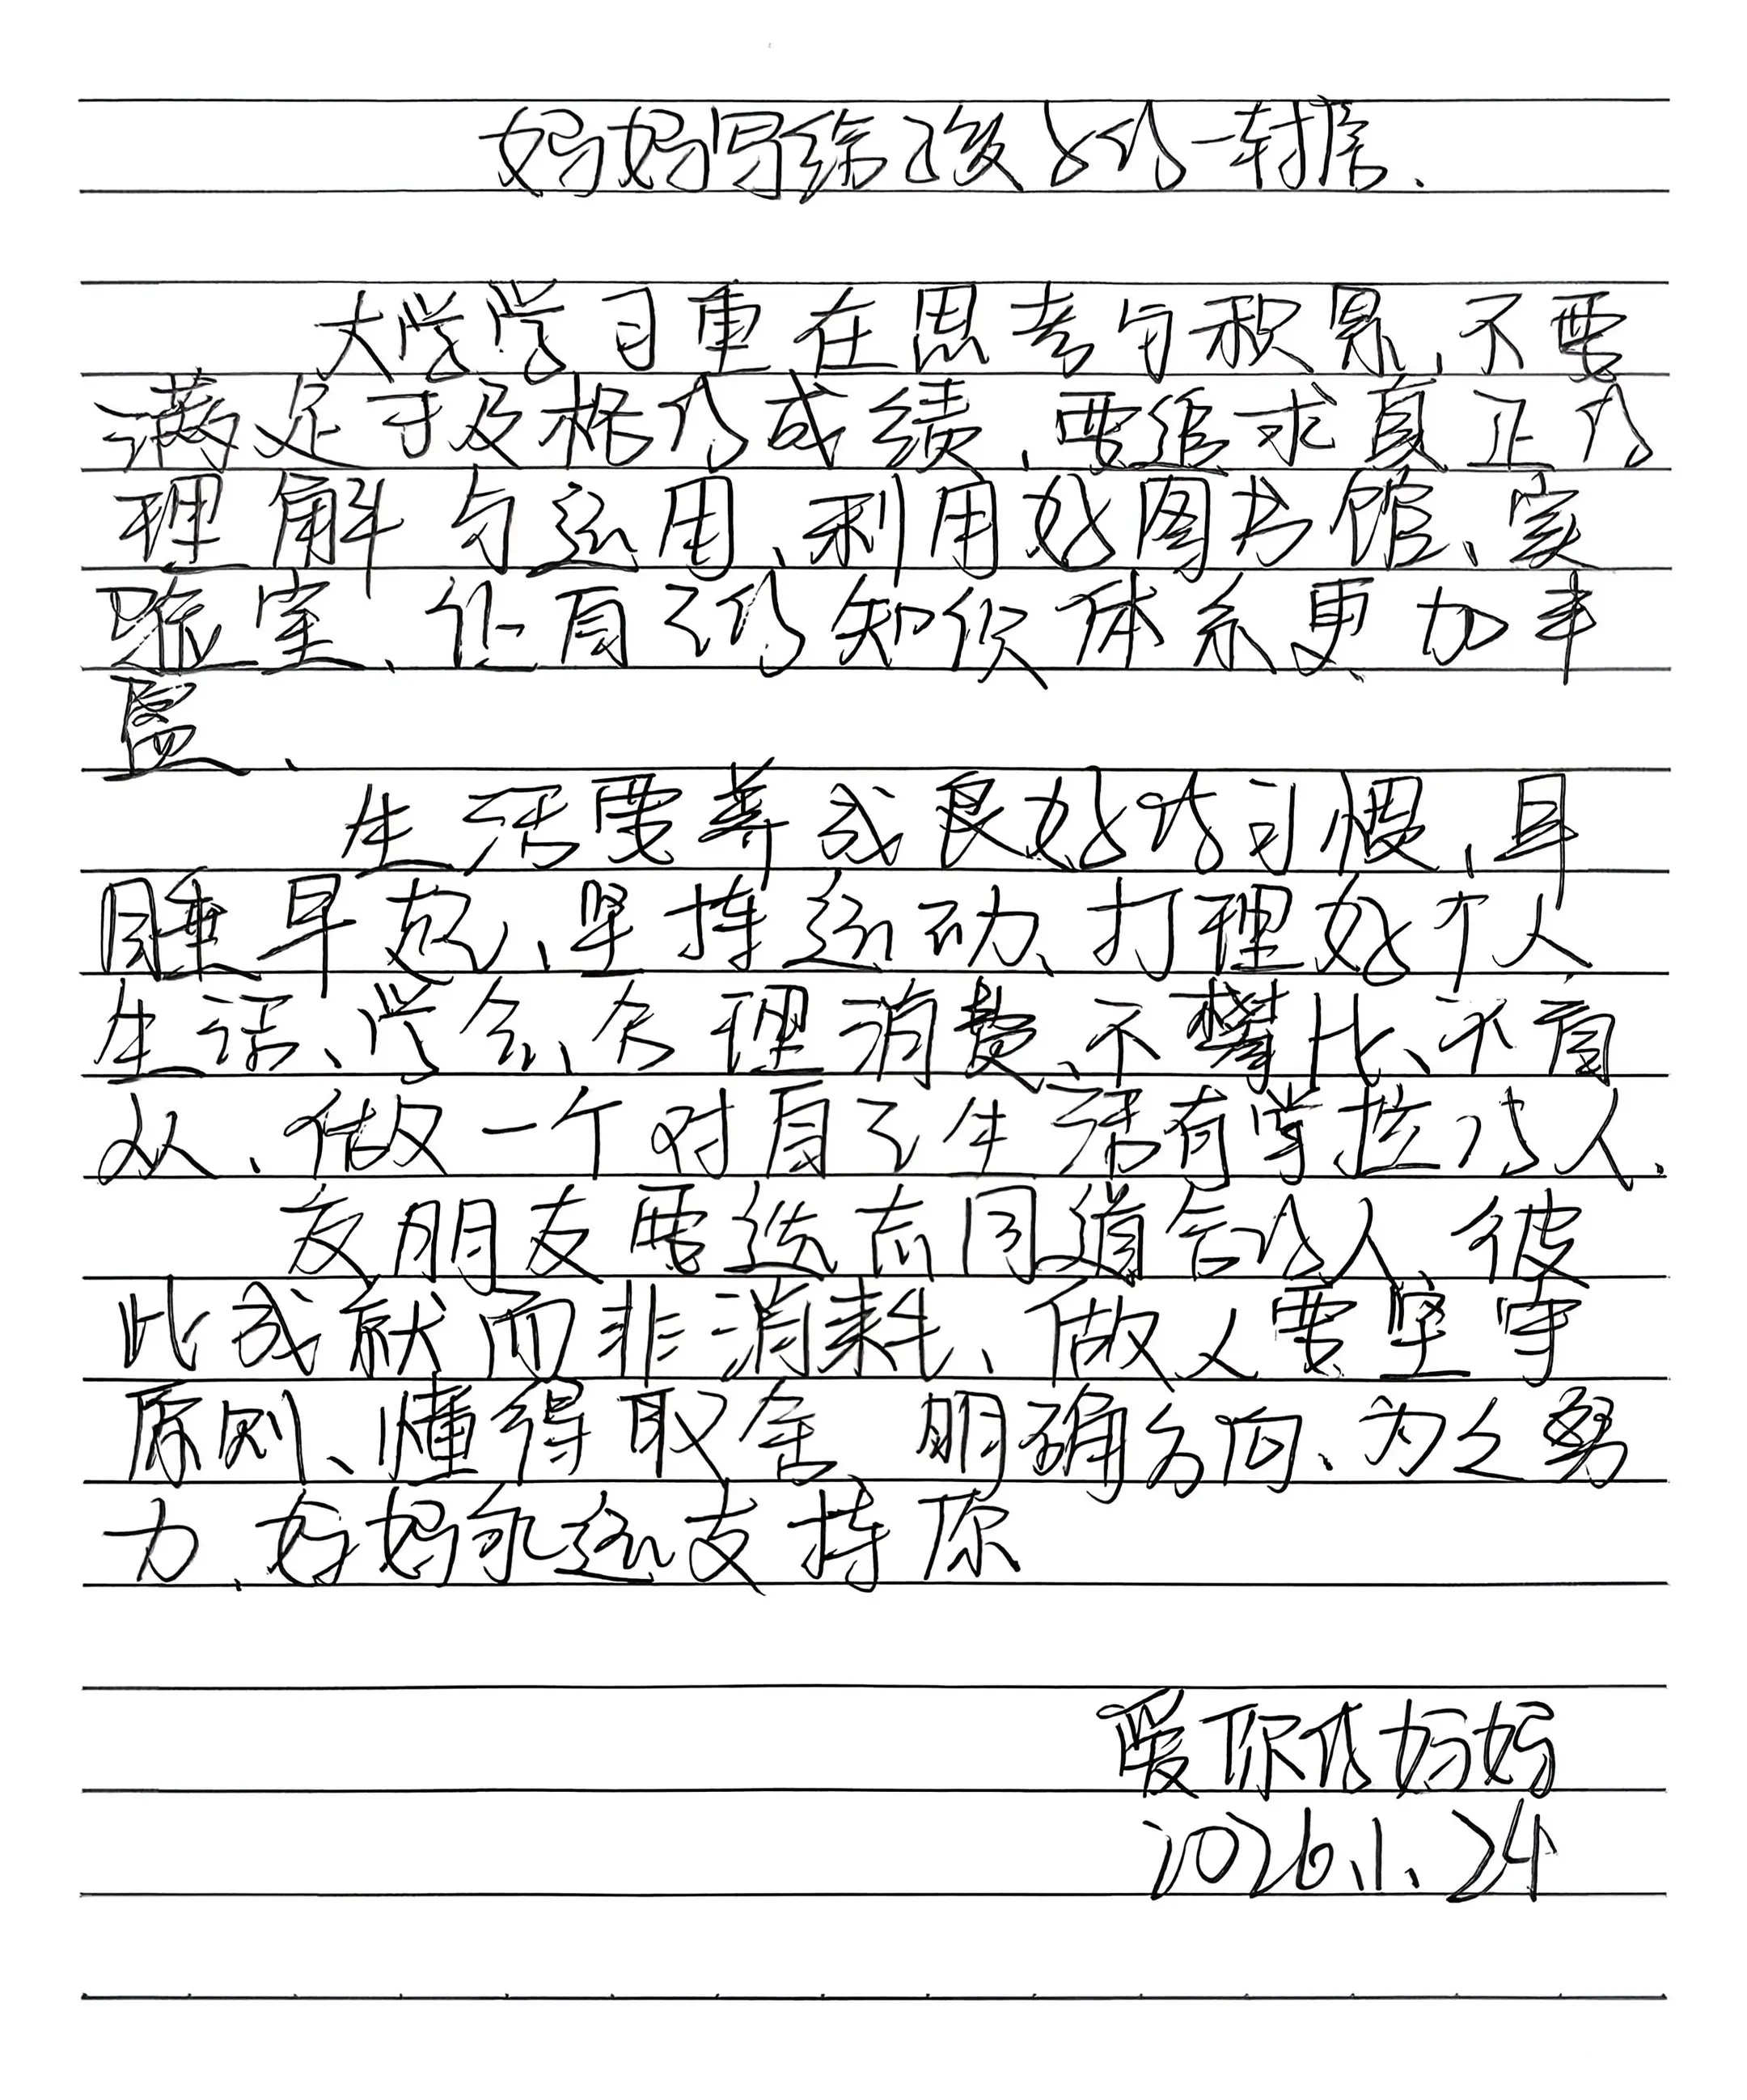 妈妈写给孩女的一封信.
大学学习重在思考与积累,不要
满足于及格的成绩,要追求真正的
理解与运用、利用好图书馆、实
验室、让自己的知识体系更加丰
盈、
生活要养成良好的习惯,早
睡早起、坚持运动、打理好个人
生活、学会合理消费、不攀比、不盲
从、做一个对自己生活有掌控的人.
交朋友要选志同道合的人,彼
此成就而非消耗、做人要坚守
原则、懂得取舍,明确方向、为之努
力,妈妈永远支持你
爱你的妈妈
2026.1.24